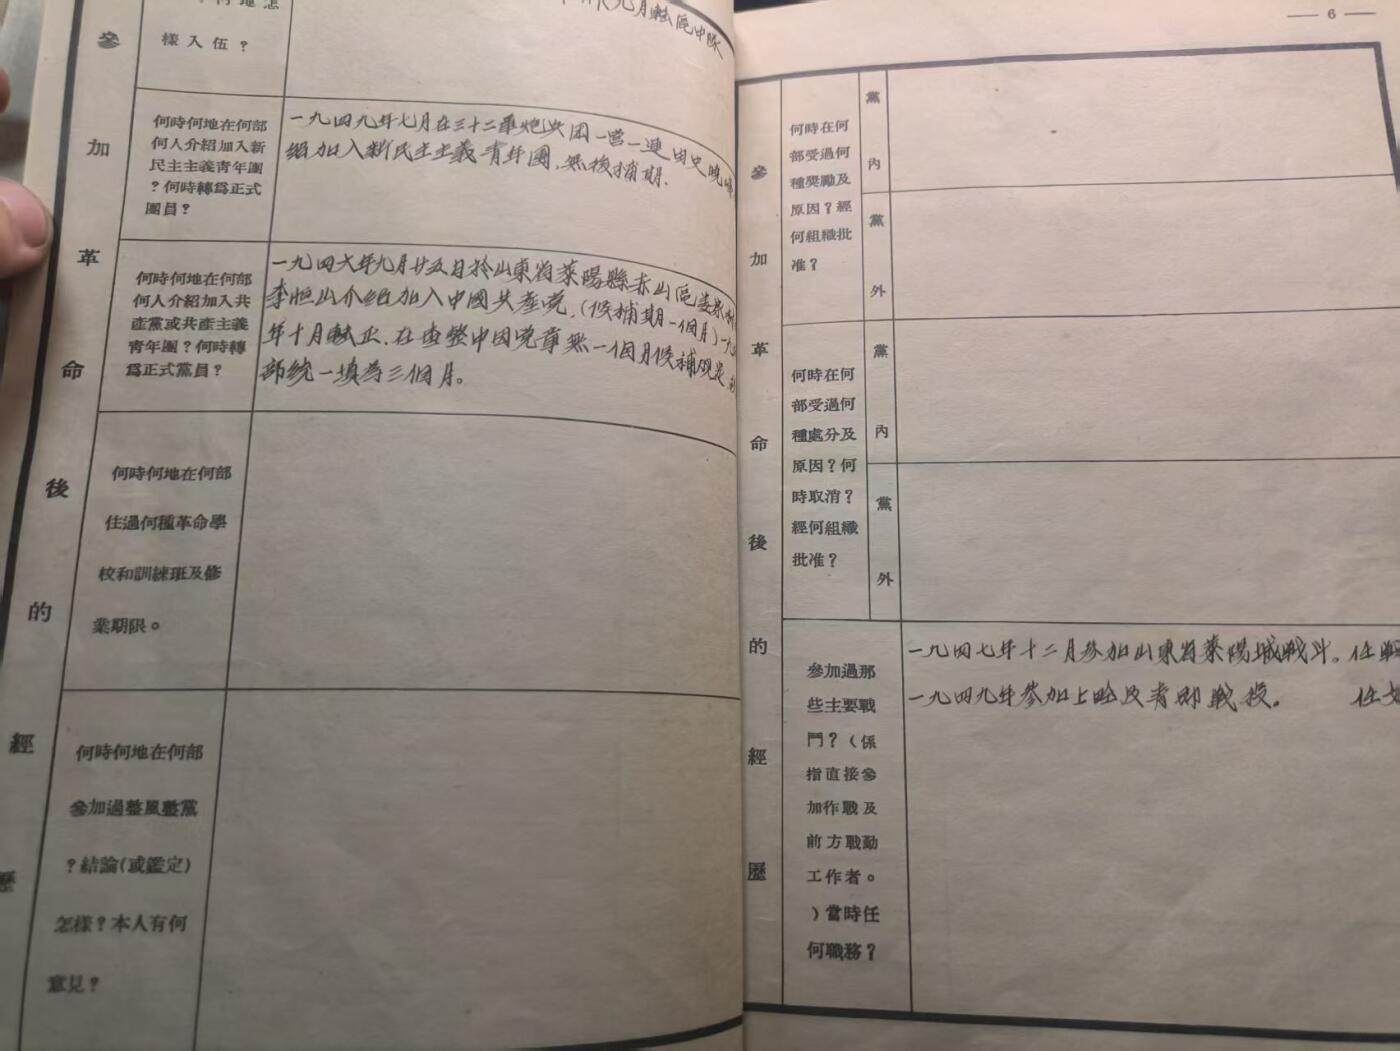 參加革命後的經歷
樣入伍？
九月轉區中隊
何時何地在何部
何人介紹加入新
民主主義青年團
？何時轉爲正式
團員？
一九四九年七月在三十二軍炮兵團一营一連由史曉
紹加入新民主主義青年團，無後補期.
何時何地在何部
何人介紹加入共
產黨或共產主義
青年團？何時轉
爲正式黨員？
一九四六年九月廿五日於山東省萊陽縣赤山區
李恒山介紹加入中國共產党，(候補期一個月)一九
年十月轉正，在查整中因党章無一個月候補
部統一填为三個月。
何時何地在何部
住過何種革命學
校和訓練班及修
業期限。
何時何地在何部
參加過整風整黨
？結論(或鑑定)
怎樣？本人有何
意見？
— 6 —
參加革命後的經歷
何時在何
部受過何
種獎勵及
原因？經
何組織批
准？
黨內
黨外
何時在何
部受過何
種處分及
原因？何
時取消？
經何組織
批准？
黨內
黨外
參加過那
些主要戰
鬥？（係
指直接參
加作戰及
前方戰勤
工作者。
）當時任
何職務？
一九四七年十二月参加山東省萊陽城戰斗。任戰
一九四九年参加上 及青即戰役。 任